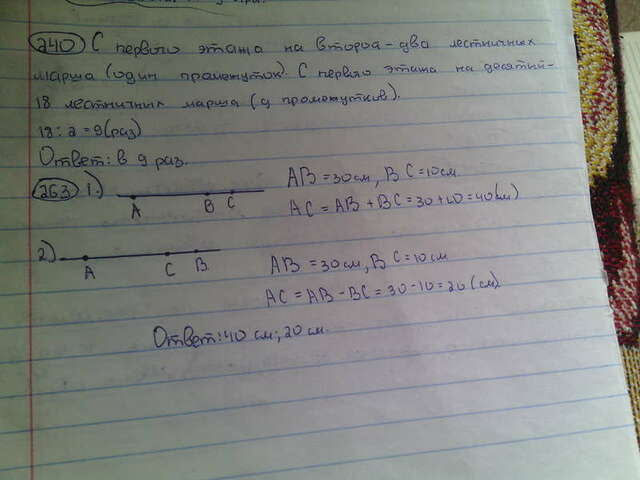 240 С первого этажа на второй - два лестничных
марша (один промежуток). С первого этажа на десятый -
18 лестничных марша (9 промежутков).
18 : 2 = 9 (раз)
Ответ: в 9 раз.
263 1) A B C AB = 30 см, BC = 10 см
AC = AB + BC = 30 + 10 = 40 (см)
2) A C B AB = 30 см, BC = 10 см
AC = AB - BC = 30 - 10 = 20 (см)
Ответ: 40 см; 20 см.